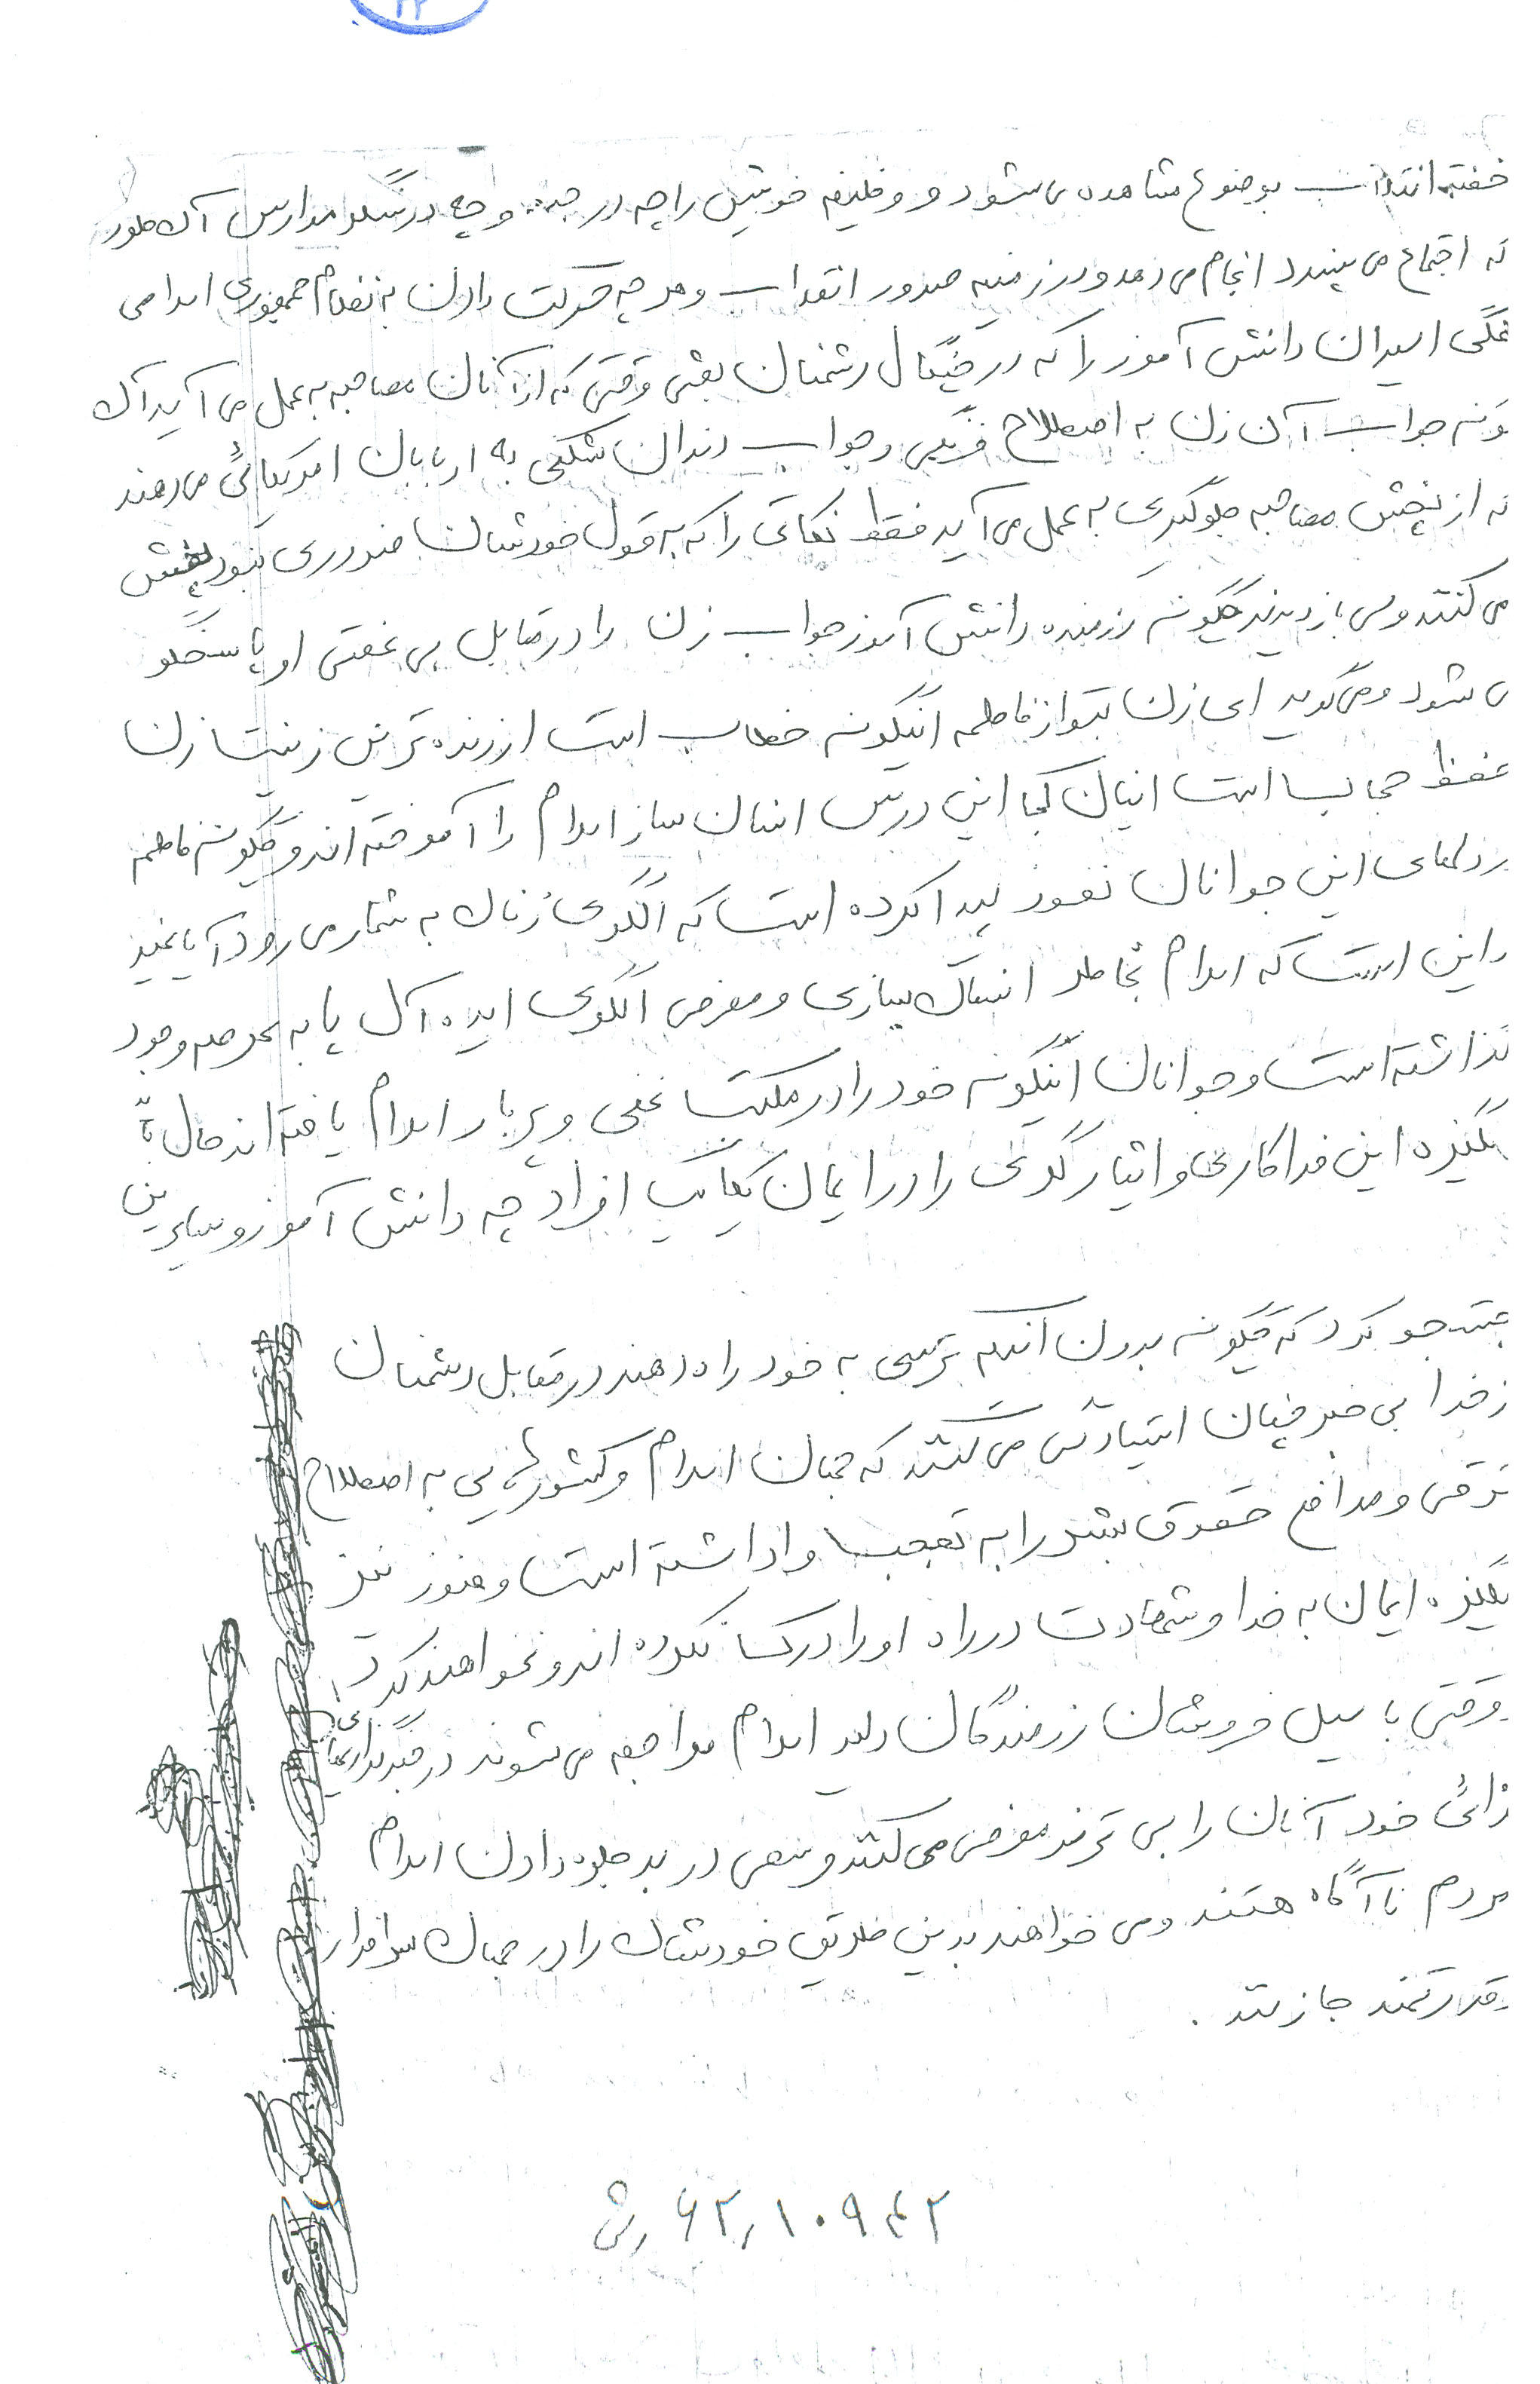 ۲۲
خفته انقلاب بوضوع مشاهده می شود و وظیفه خویش را چه در جبهه و چه در سنگر مدارس آن طور
که اجتماع می پسندد انجام می دهد و در زمینه صدور انقلاب و هر چه حرکت دادن به نظام جمهوری اسلامی
همگی اسیران دانش آموز را که در چنگال دشمنان بعثی وقتی که از آنان مصاحبه به عمل می آید آن
گونه جواب آن زن به اصطلاح فرنگی و جواب دندان شکنی به اربابان امریکائی می دهند
که از پخش مصاحبه جلوگیری به عمل می آید فقط نکاتی را که به قول خودشان ضروری بود پخش
می کنند ولی باز دیدند چگونه رزمنده دانش آموز جواب زن را در مقابل بی عفتی او پاسخگو
می شود و می گوید ای زن بتو از فاطمه اینگونه خطاب است ارزنده ترین زینت زن
حفظ حجاب است اینان کجا این درس انسان ساز اسلام را آموخته اند و چگونه فاطمه
در دلهای این جوانان نفوذ پیدا کرده است که الگوی زنان به شمار می رود آیا غیر
از این است که اسلام بخاطر انسان سازی و معرفی الگوی ایده آل پا به عرصه وجود
گذاشته است و جوانان اینگونه خود را در مکتب غنی و پربار اسلام یافته اند حال با
انگیزه این فداکاری و ایثارگری را در ایمان یکایک افراد چه دانش آموز و سایرین
جستجو کرد که چگونه بدون آنکه ترسی به خود راه دهند در مقابل دشمنان
از خدا بی خبر چنان ایستادگی می کنند که جهان اسلام و کشورهایی به اصطلاح
مترقی و مدافع حقوق بشر را به تعجب واداشته است و هنوز نیز
انگیزه ایمان به خدا و شهادت در راه او را درک نکرده اند و نخواهند کرد
وقتی با سیل خروشان رزمندگان دلیر اسلام مواجه می شوند در خبرگذاریهای
خود آنان را بی ترند معرفی می کنند و سعی در بد جلوه دادن اسلام
مردم ناآگاه هستند و می خواهند بدین طریق خودشان را در جهان سرافراز
و قدرتمند جا زنند .